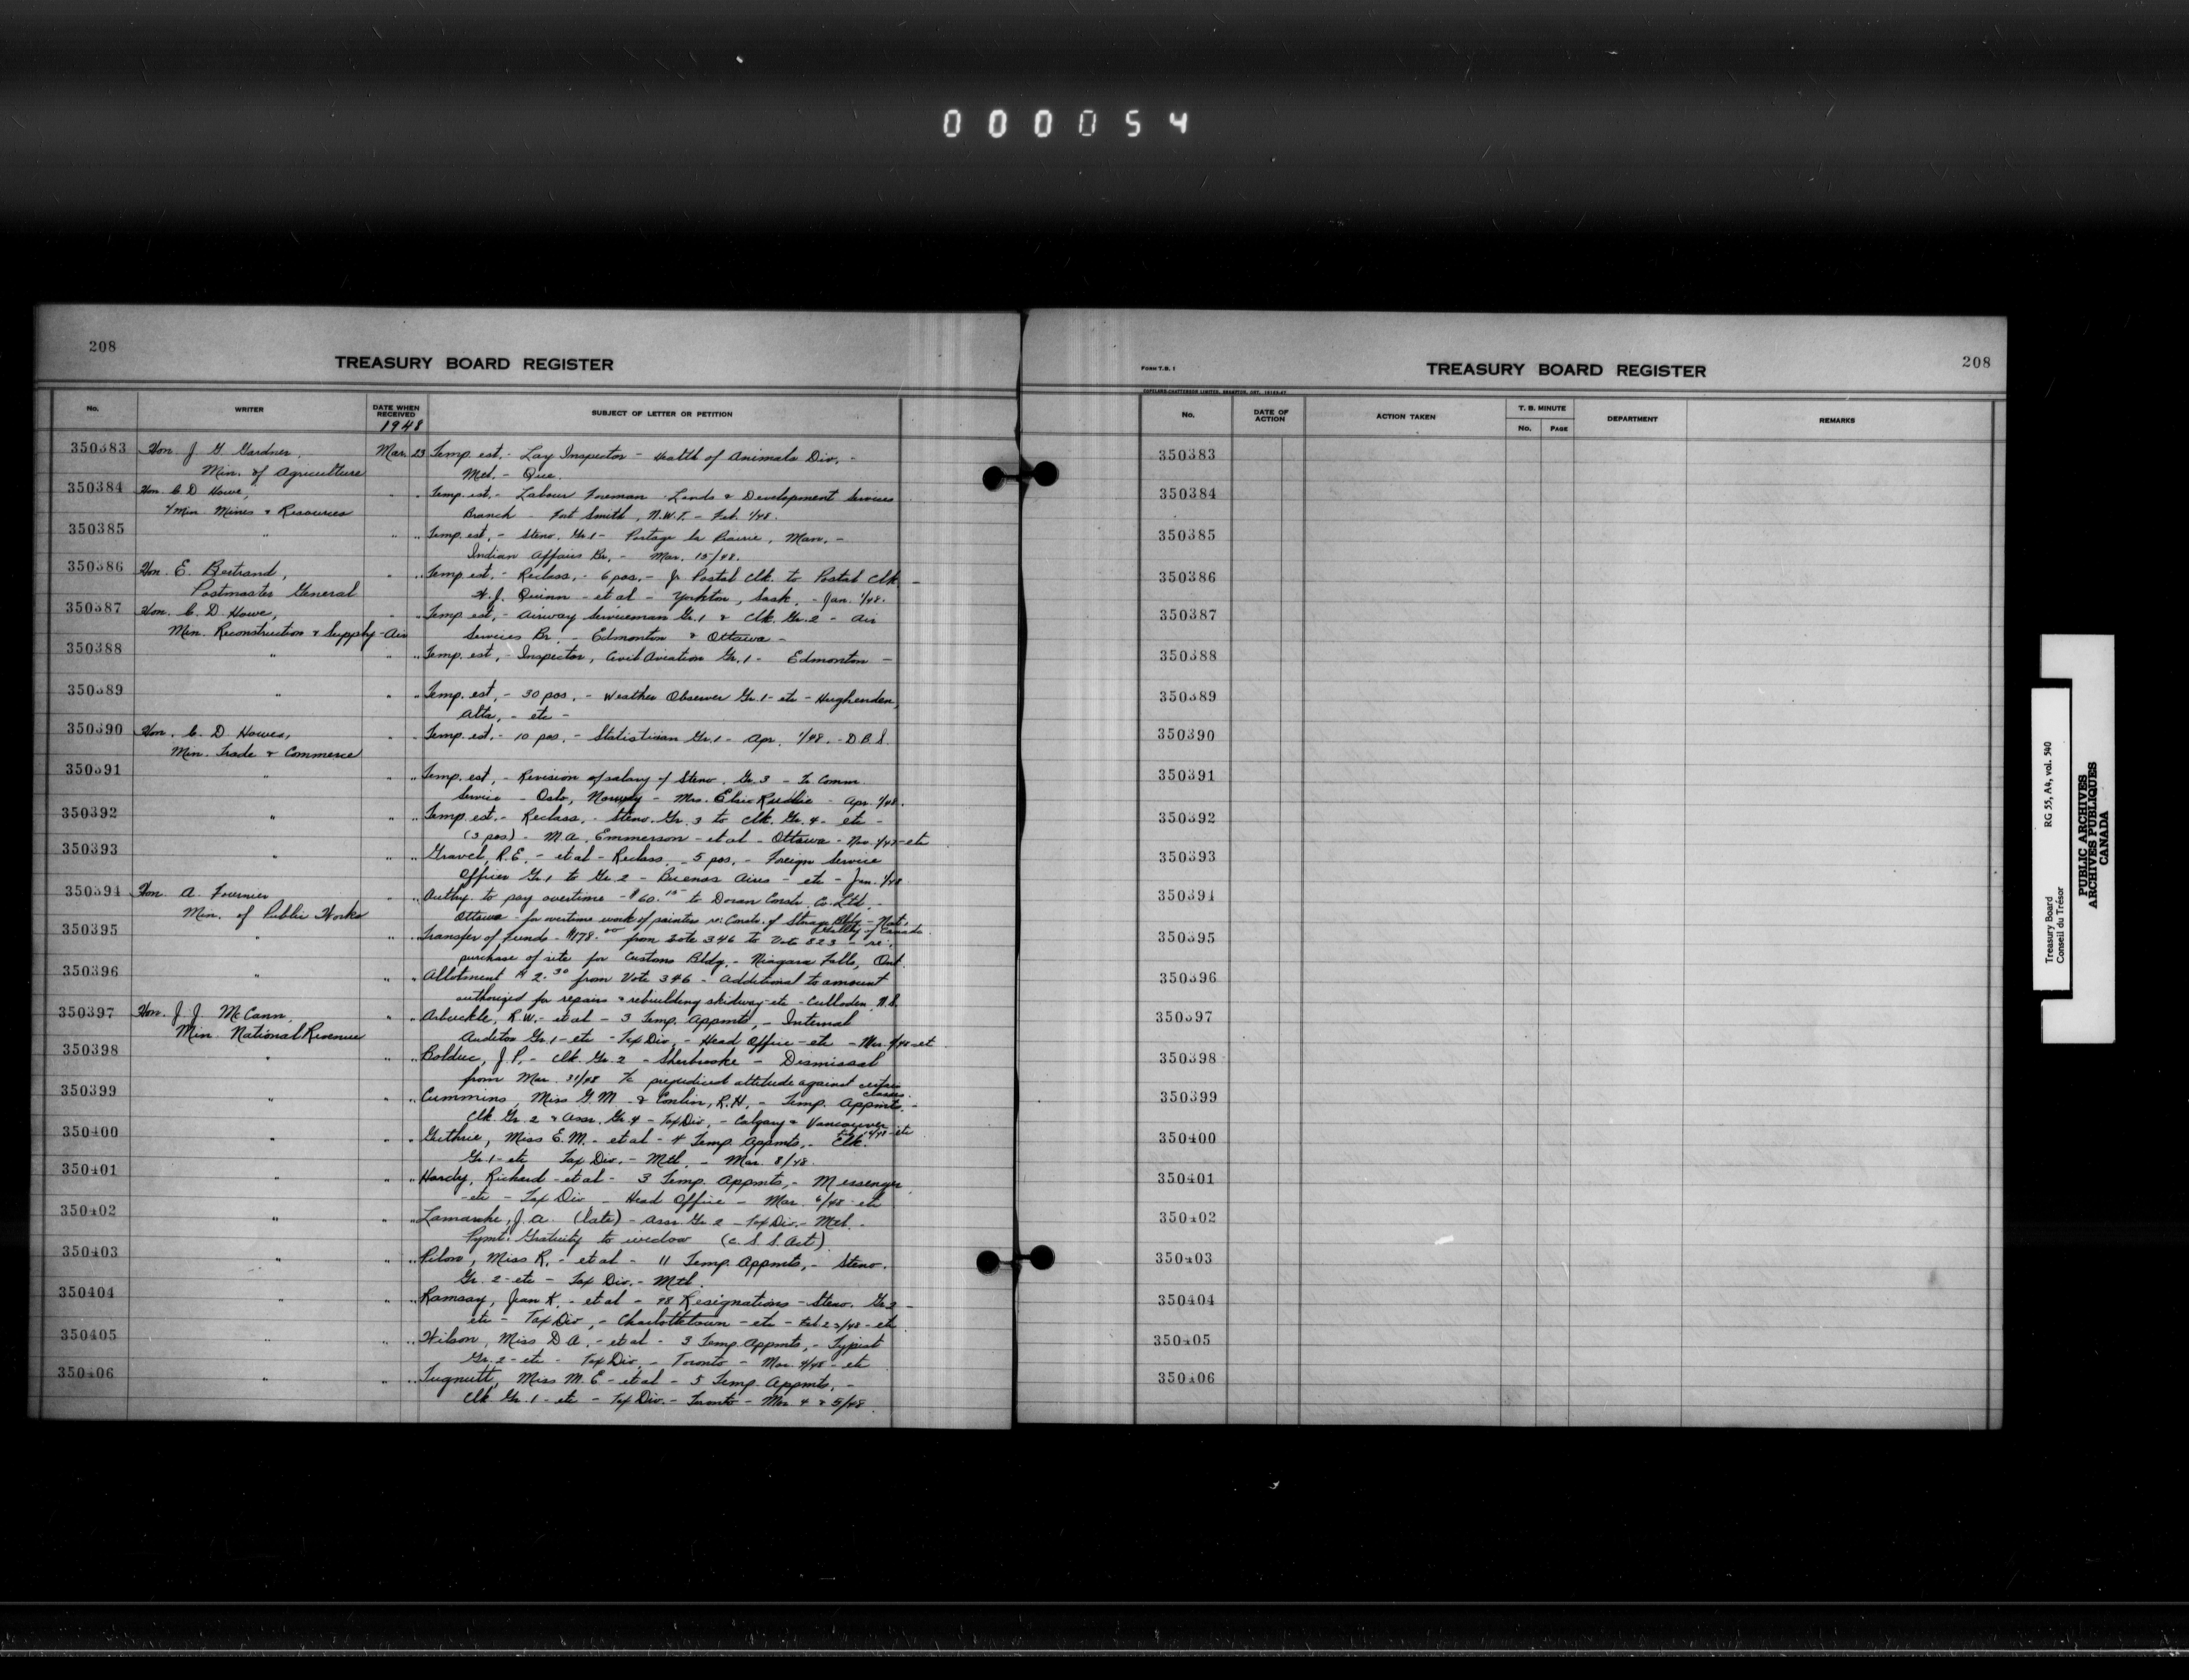 000054
208
TREASURY BOARD REGISTER
No.
WRITER
DATE WHEN RECEIVED
1948
SUBJECT OF LETTER OR PETITION
350383 Hon. J G Gardner, Mar. 23 Temp. est. - Lay Inspector - Health of Animals Div. -
Min. of Agriculture Mtl. - Que.
350384 Hon. C D Howe, " " Temp. est. - Labour Foreman - Lands & Development Services
Min Mines & Resources Branch - Fort Smith, N.W.T. - Feb. 1/48.
350385 " " " Temp. est, - Steno. Gr. 1 - Portage la Prairie, Man. -
Indian Affairs Br. - Mar. 15/48.
350386 Hon. E. Bertrand, " " Temp. est. - Reclass. - 6 pos. - Jr Postal Clk. to Postal Clk -
Postmaster General H. J. Quinn - et al - Yorkton, Sask. - Jan. 1/48.
350387 Hon. C. D. Howe, " " Temp est, - Airway Serviceman Gr. 1 & Clk. Gr. 2 - Air
Min. Reconstruction & Supply - Air Services Br. - Edmonton & Ottawa -
350388 " " " Temp. est, - Inspector, Civil Aviation Gr. 1 - Edmonton -
350389 " " " Temp. est, - 30 pos. - Weather Observer Gr. 1 - etc - Hughenden,
Alta, - etc -
350390 Hon. C. D. Howe, " " Temp. est. - 10 pos. - Statistician Gr. 1 - Apr. 1/48. - D.B.S.
Min. Trade & Commerce
350391 " " " Temp. est, - Revision of salary of Steno. Gr. 3 - Tr. Comm
Service - Oslo, Norway - Mrs. Elsie - Apr. 1/48.
350392 " " " Temp est. - Reclass. - Steno. Gr. 3 to Clk. Gr. 4 - etc -
(3 pos) - M. A. Emmerson - et al - Ottawa - Nov. - etc
350393 " " " Gravel, R. E. - et al - Reclass. - 5 pos. - Foreign Service
Officer Gr. 1 to Gr. 2 - Buenos Aires - etc - Jan. 1/48
350394 Hon. A. Fournier " " Authy. to pay overtime - $60.15 to Doran Constr. Co. Ltd. -
Min. of Public Works Ottawa - for overtime work of painters re: Constr. of Storage Bldg - Nat.
Gallery of Canada.
350395 " " " Transfer of Funds - $178.00 from Vote 346 to Vote 823 - re:
purchase of site for Customs Bldg. - Niagara Falls, Ont.
350396 " " " Allotment $ 2.30 from Vote 346 - Additional to amount
authorized for repairs & rebuilding skidway - etc - Culloden, N.S.
350397 Hon. J. J. McCann, " " Arbuckle, R. W. - et al - 3 Temp. Appmts, - Internal
Min. National Revenue Auditor Gr. 1 - etc - Tax Div. - Head Office - etc - Mar. - et
350398 " " " Bolduc, J. P. - Clk. Gr. 2 - Sherbrooke - Dismissal
from Mar. 31/48 prejudiced attitude against certain
classes.
350399 " " " Cummins, Miss G. M. & Conlin, R. H. - Temp. Appmts. -
Clk Gr. 2 & Assr. Gr. 4 - Tax Div. - Calgary & Vancouver - etc
350400 " " " Guthrie, Miss E. M. - et al - 4 Temp. Appmts. - Clk.
Gr. 1 - etc Tax Div. - Mtl. - Mar. 8/48.
350401 " " " Hardy, Richard - et al - 3 Temp. Appmts, - Messenger
- etc - Tax Div - Head Office - Mar. 6/48 - etc
350402 " " " Lamarche, J. A. (late) - Assr. Gr. 2 - Tax Div. - Mtl. -
Pymt. Gratuity to widow (C. S. S. Act)
350403 " " " Pilon, Miss R. - et al - 11 Temp. Appmts, - Steno.
Gr. 2 - etc - Tax Div. - Mtl.
350404 " " " Ramsay, Jean K. - et al - Resignations - Steno. Gr. 2 -
etc - Tax Div, - Charlottetown - etc - Feb 23/48 - etc
350405 " " " Wilson, Miss D A. - et al - 3 Temp. Appmts, - Typist
Gr. 2 - etc - Tax Div. - Toronto - Mar. 4/48 - etc
350406 " " " Tugnutt, Miss M. E - et al - 5 Temp. Appmts. -
Clk. Gr. 1 - etc - Tax Div. - Toronto - Mar 4 & 5/48.
FORM T.B. 1
TREASURY BOARD REGISTER
208
No.
DATE OF ACTION
ACTION TAKEN
T. B. MINUTE
No.
PAGE
DEPARTMENT
REMARKS
350383
350384
350385
350386
350387
350388
350389
350390
350391
350392
350393
350394
350395
350396
350397
350398
350399
350400
350401
350402
350403
350404
350405
350406
Treasury Board RG 55, A4, vol. 540
Conseil du Trésor
PUBLIC ARCHIVES
ARCHIVES PUBLIQUES
CANADA